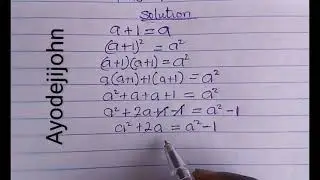 Solution
a + 1 = a
(a+1)² = a²
(a+1)(a+1) = a²
a(a+1)+1(a+1) = a²
a²+a+a+1 = a²
a²+2a+1-1 = a²-1
a²+2a = a²-1
Ayodejijohn